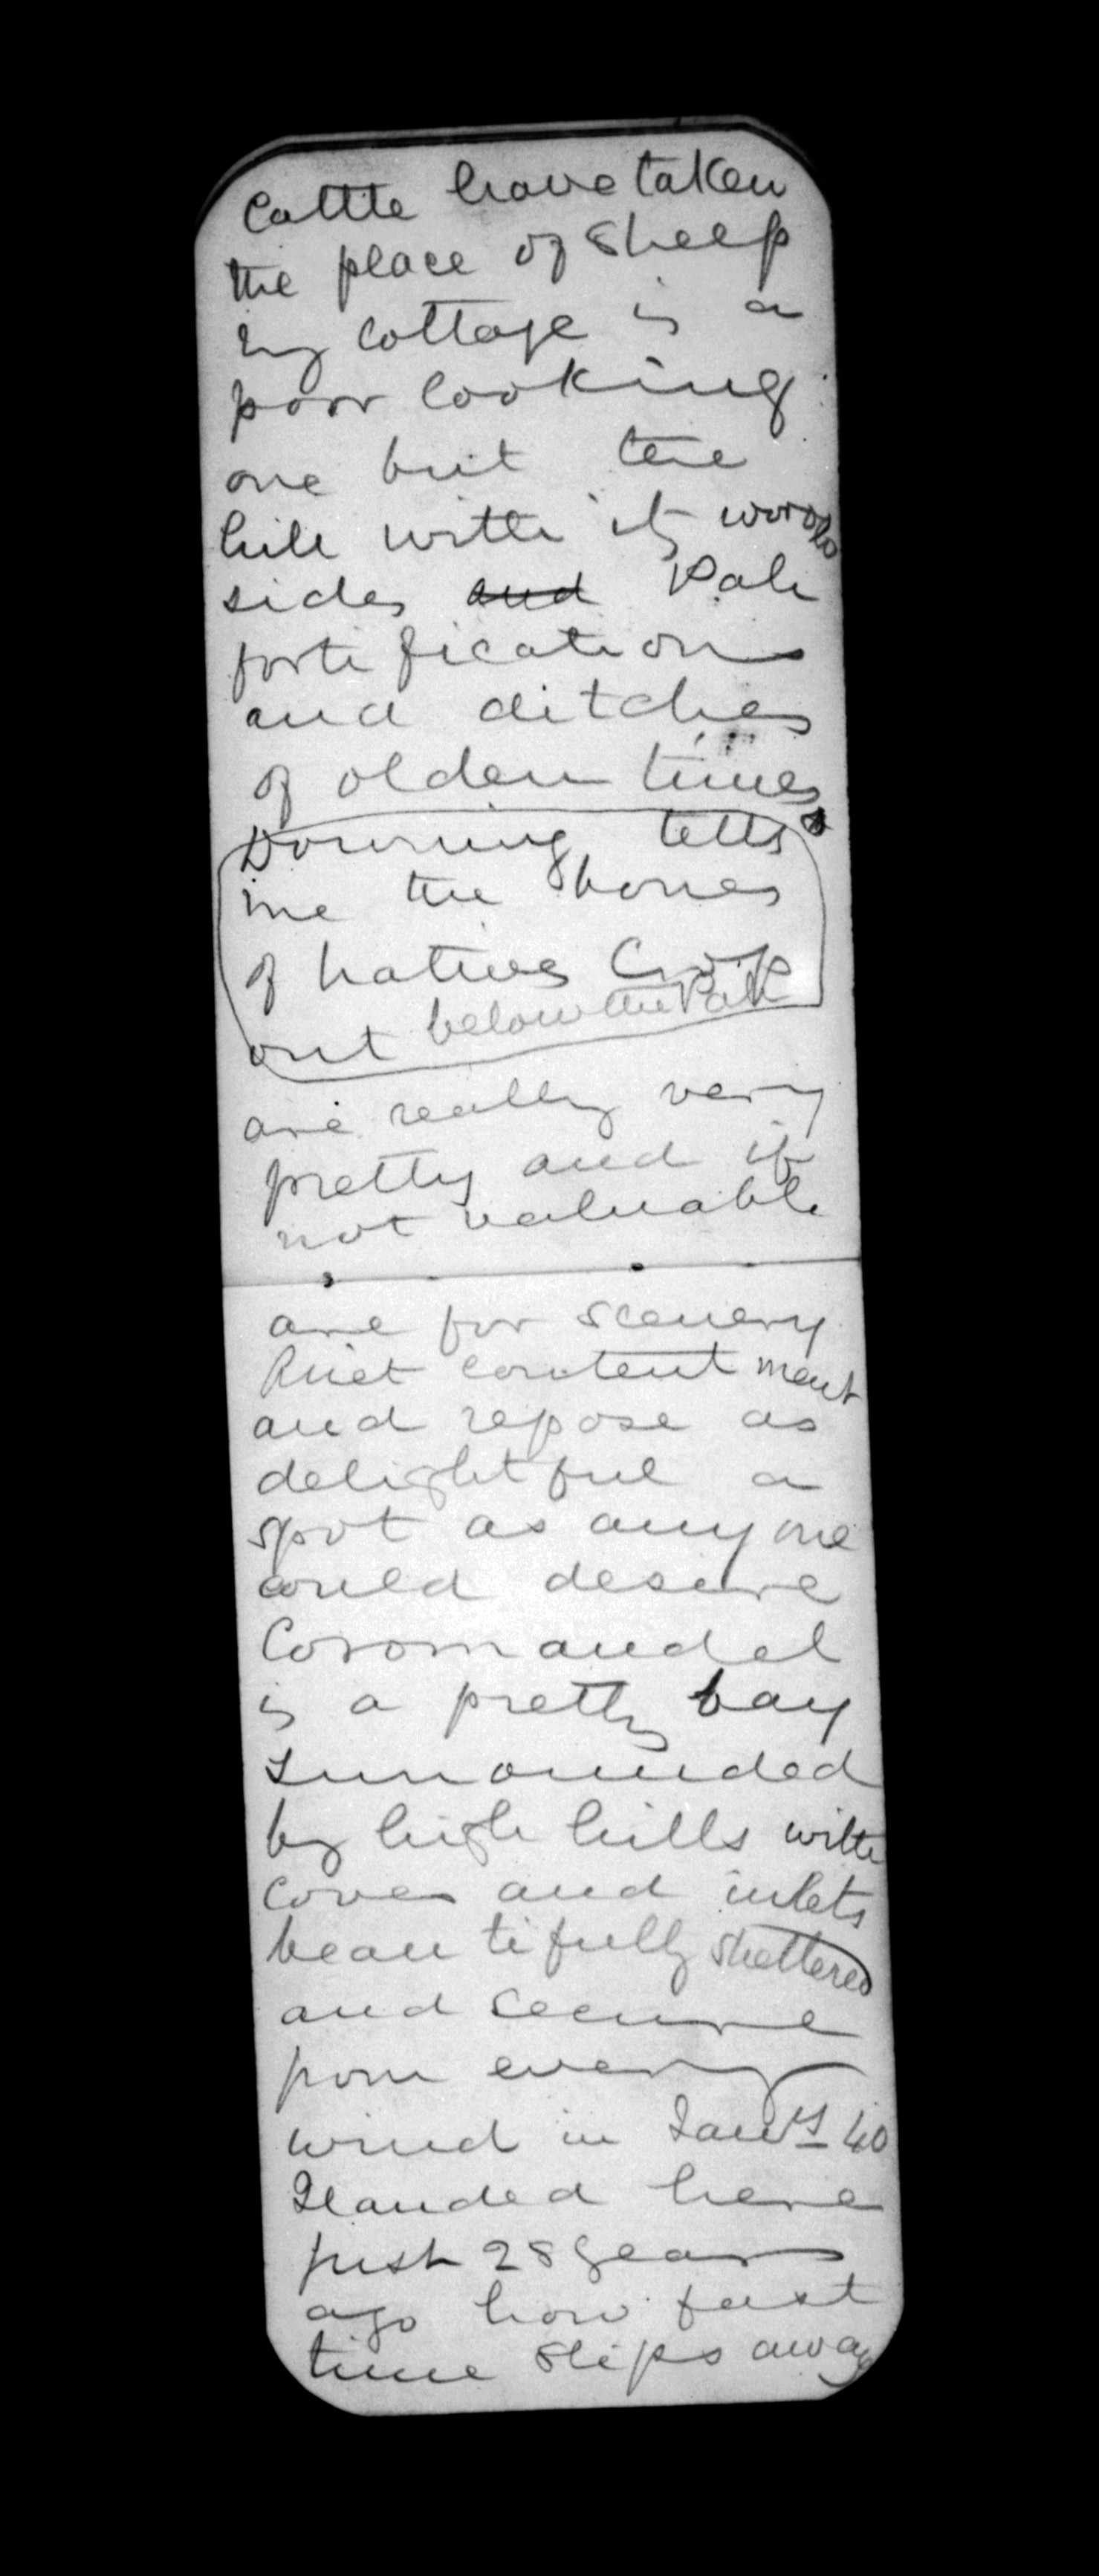 Cattle have taken
the place of sheep
my cottage is a
poor looking
one but the
hill with its woody
sides and Pah
fortifications
and ditches
of olden times
Downing tells
me the bones
of natives Crop
out below the Pah
are really very
pretty and if
not valuable
are for scenery
Quiet contentment
and repose as
delightful a
spot as anyone
could desire
Coromandel
is a pretty bay
surrounded
by high hills with
coves and inlets
beautifully sheltered
and secure
from every
wind in Jany 40
I landed here
just 28 years
ago how fast
time slips away